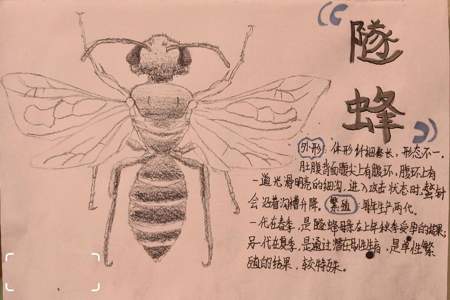 隧
蜂
外形：体形纤细修长，形态不一，
肚腹背面腹尖上有腹环，腹环上有
一道光滑明亮的细沟，进入攻击状态时螫针
会沿着沟槽升降。繁殖：每年生产两代，
一代在春季，是隧蜂母亲在上年秋季受孕的结果；
另一代在夏季，是通过潜在母性生育，是单性繁
殖的结果，较特殊。